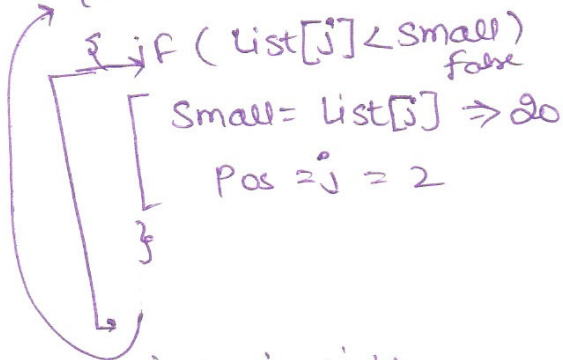 { if ( List[j] < Small)
false
Small = List[j] ⇒ 20
Pos = j = 2
}